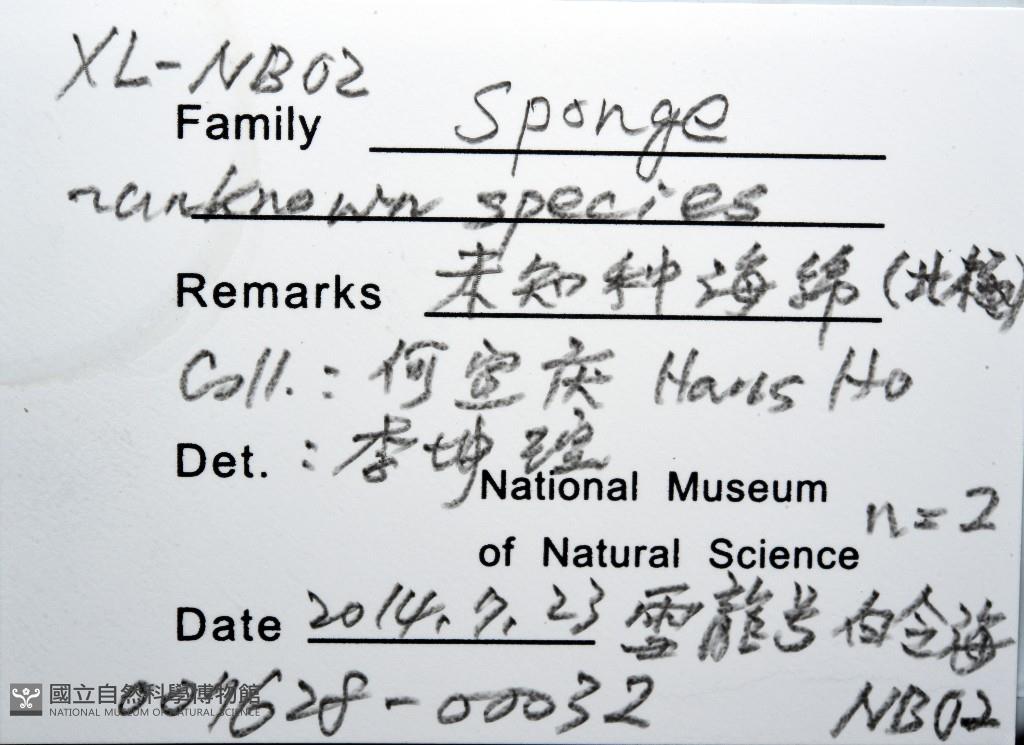 XL-NB02
Family Sponge
unknown species
Remarks 未知种海綿(北極)
Coll.: 何宣庆 Hans Ho
Det. : 李坤瑄
National Museum
n=2
of Natural Science
Date 2014.7.23 雪龍号 白令海
-00032 NB02
國立自然科學博物館
NATIONAL MUSEUM OF NATURAL SCIENCE